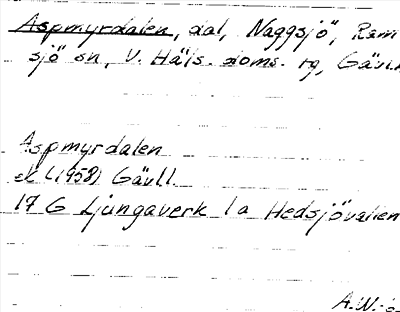 Aspmyrdalen, dal, Naggsjö, Ram
sjö sn, V. Häls. doms. rg, Gävl
Aspmyrdalen
ek (1958) Gävl.
17 G Ljungaverk 1 a Hedsjövallen
A.W-ö-